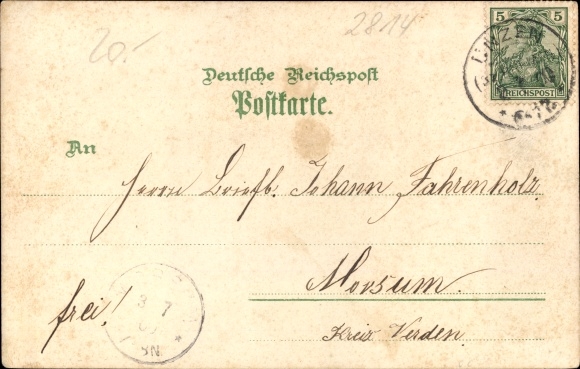 20.-
2814
5 5
REICHSPOST
Deutsche Reichspost
Postkarte.
An
Herrn Briefb. Johann Fahrenholz
Morsum.
frei!
Kreis Verden.
3 7